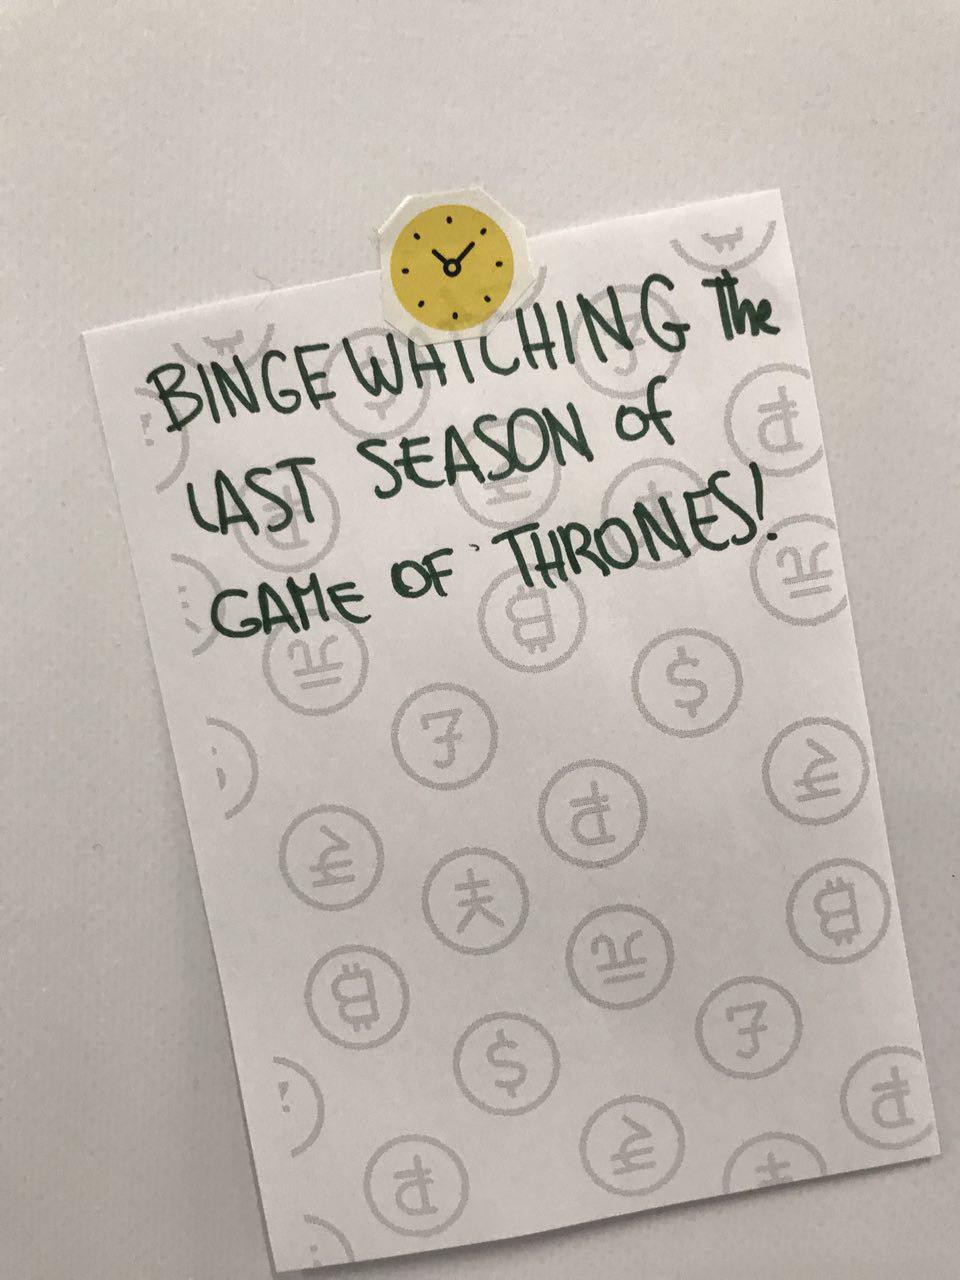 BINGEWATCHING the
LAST SEASON of
GAME OF THRONES!